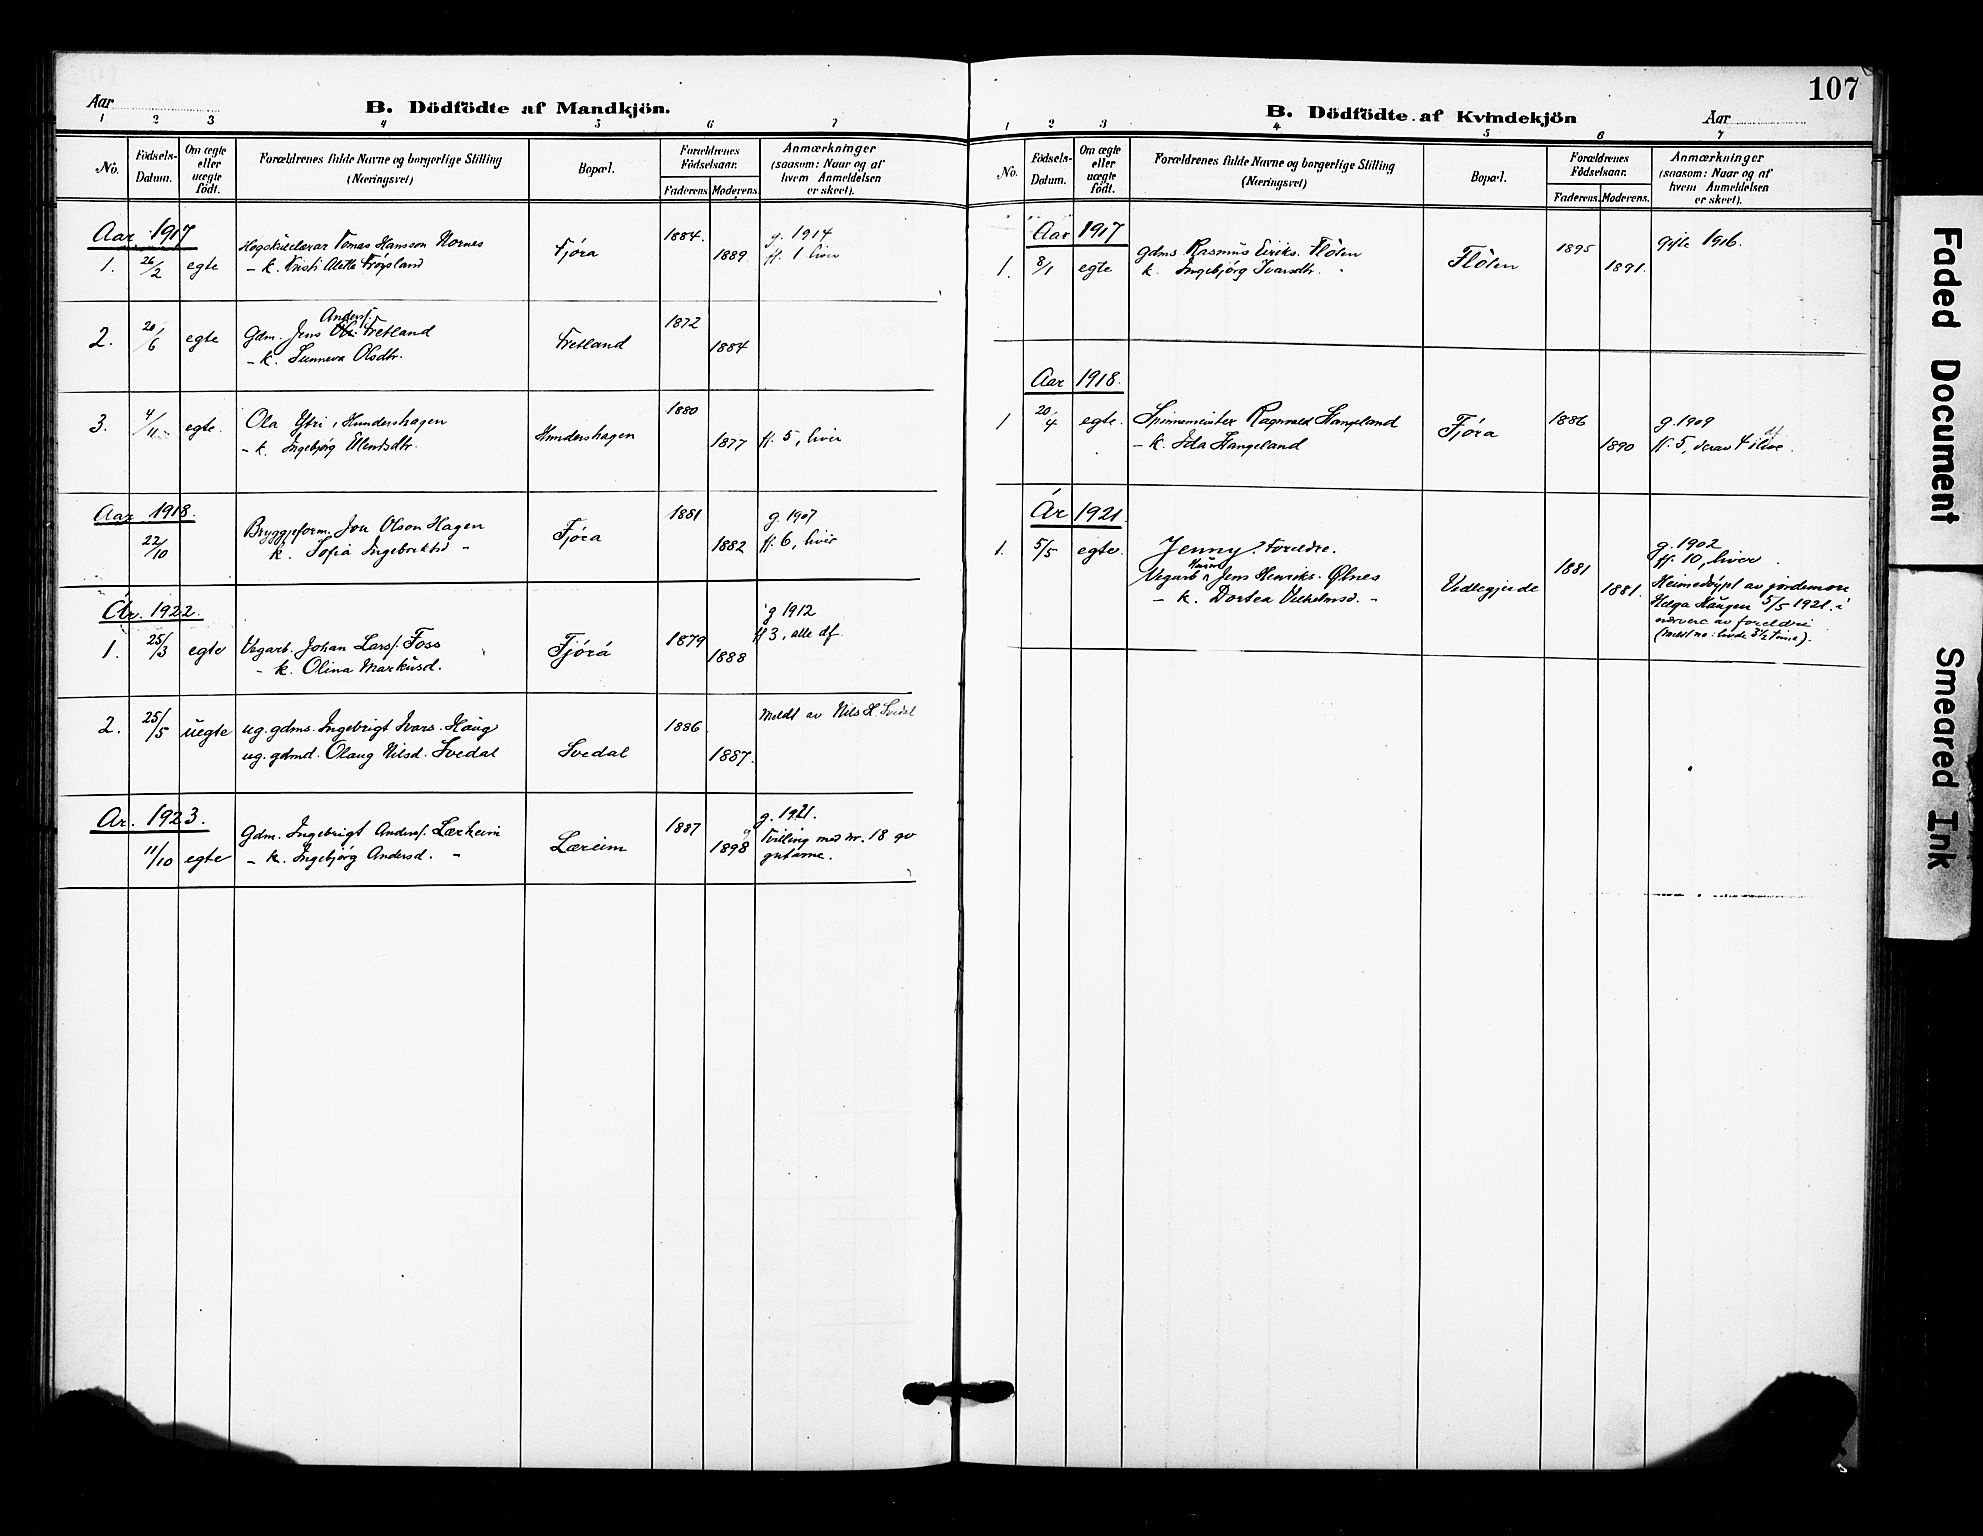 Aar
B. Dödfödte af Mandkjön.
1 2 3 4 5 6 7
No.
Födsels-
Datum.
Om ægte
eller
uægte
födt.
Forældrenes fulde Navne og borgerlige Stilling
(Næringsvei)
Bopæl.
Forældrenes
Födselsaar.
Faderens. Moderens.
Anmærkninger
(saasom: Naar og af
hvem Anmeldelsen
er skeet).
Aar 1917
1. 26/2 egte
Tomas Hansson Nornes
- k. Kristi
Fjöra
1884.
1889.
g. 1914
ff. 1 liver
2. 20/6 egte
Andersf.
Gdm. Jens Fretland
- k. Sunneva Olsdtr.
Fretland
1872
1884
3. 4/11 egte.
Ola Ytri, Hundershagen
- k. Ingebjørg
Hundershagen
1880
1877
ff. 5, liver
Aar 1918.
22/10
Jon Olson Hagen
k. Sofia Ingebriktsd "
Fjöra
1881
1882
g. 1907
ff. 6, liver
År. 1922.
1. 25/3 egte
Vegarb. Johan Larsf. Foss
- k. Olina Markusd.
Fjørå
1879
1888
g 1912
ff 3, alle df.
2. 25/5 uegte
ug. gdms. Ingebrigt Ivars. Haug
ug. gdmd. Olaug Nilsd. Svedal
Svedal
1886
1887.
Meldt av Nils H. Svedal
Ar. 1923.
11/10 egte
Gdm. Ingebrigt Andersf. Lærheim
- k. Ingebjørg Andersd. "
Læreim
1887
1898
g. 1921.
Tvilling med nr. 18 av
gutarne.
107
B. Dödfödte af Kvindekjön
Aar
1 2 3 4 5 6 7
No.
Födsels-
Datum.
Om ægte
eller
uægte
födt.
Forældrenes fulde Navne og borgerlige Stilling
(Næringsvei)
Bopæl.
Forældrenes
Födselsaar.
Faderens. Moderens.
Anmærkninger
(saasom: Naar og af
hvem Anmeldelsen
er skeet).
Aar 1917
1. 8/1 egte
Gdms Rasmus Eiriks. Flöten
k. Ingebjörg Ivarsdtr. "
Flöten
1895
1891.
gifte 1916.
Aar 1918.
1 20/4 egte.
Spinnemeister Ragnvald Hangeland
- k. Ida Hangeland
Fjøra
1886
1890
g. 1909
ff. 5, derav 4 ilive.
År 1921.
1. 5/5 egte.
Jenny. Foreldre.
Vegarb. Jens Henriks. Ølnes
- k. Dortea Vilhelmsd. "
Vedlegjerde
1881
1881.
g. 1902
ff. 10, liver.
Heimedøypt av jordemore
Helga Haugen 5/5 1921. i
nærvere av foreldre
Faded Document
Smeared Ink